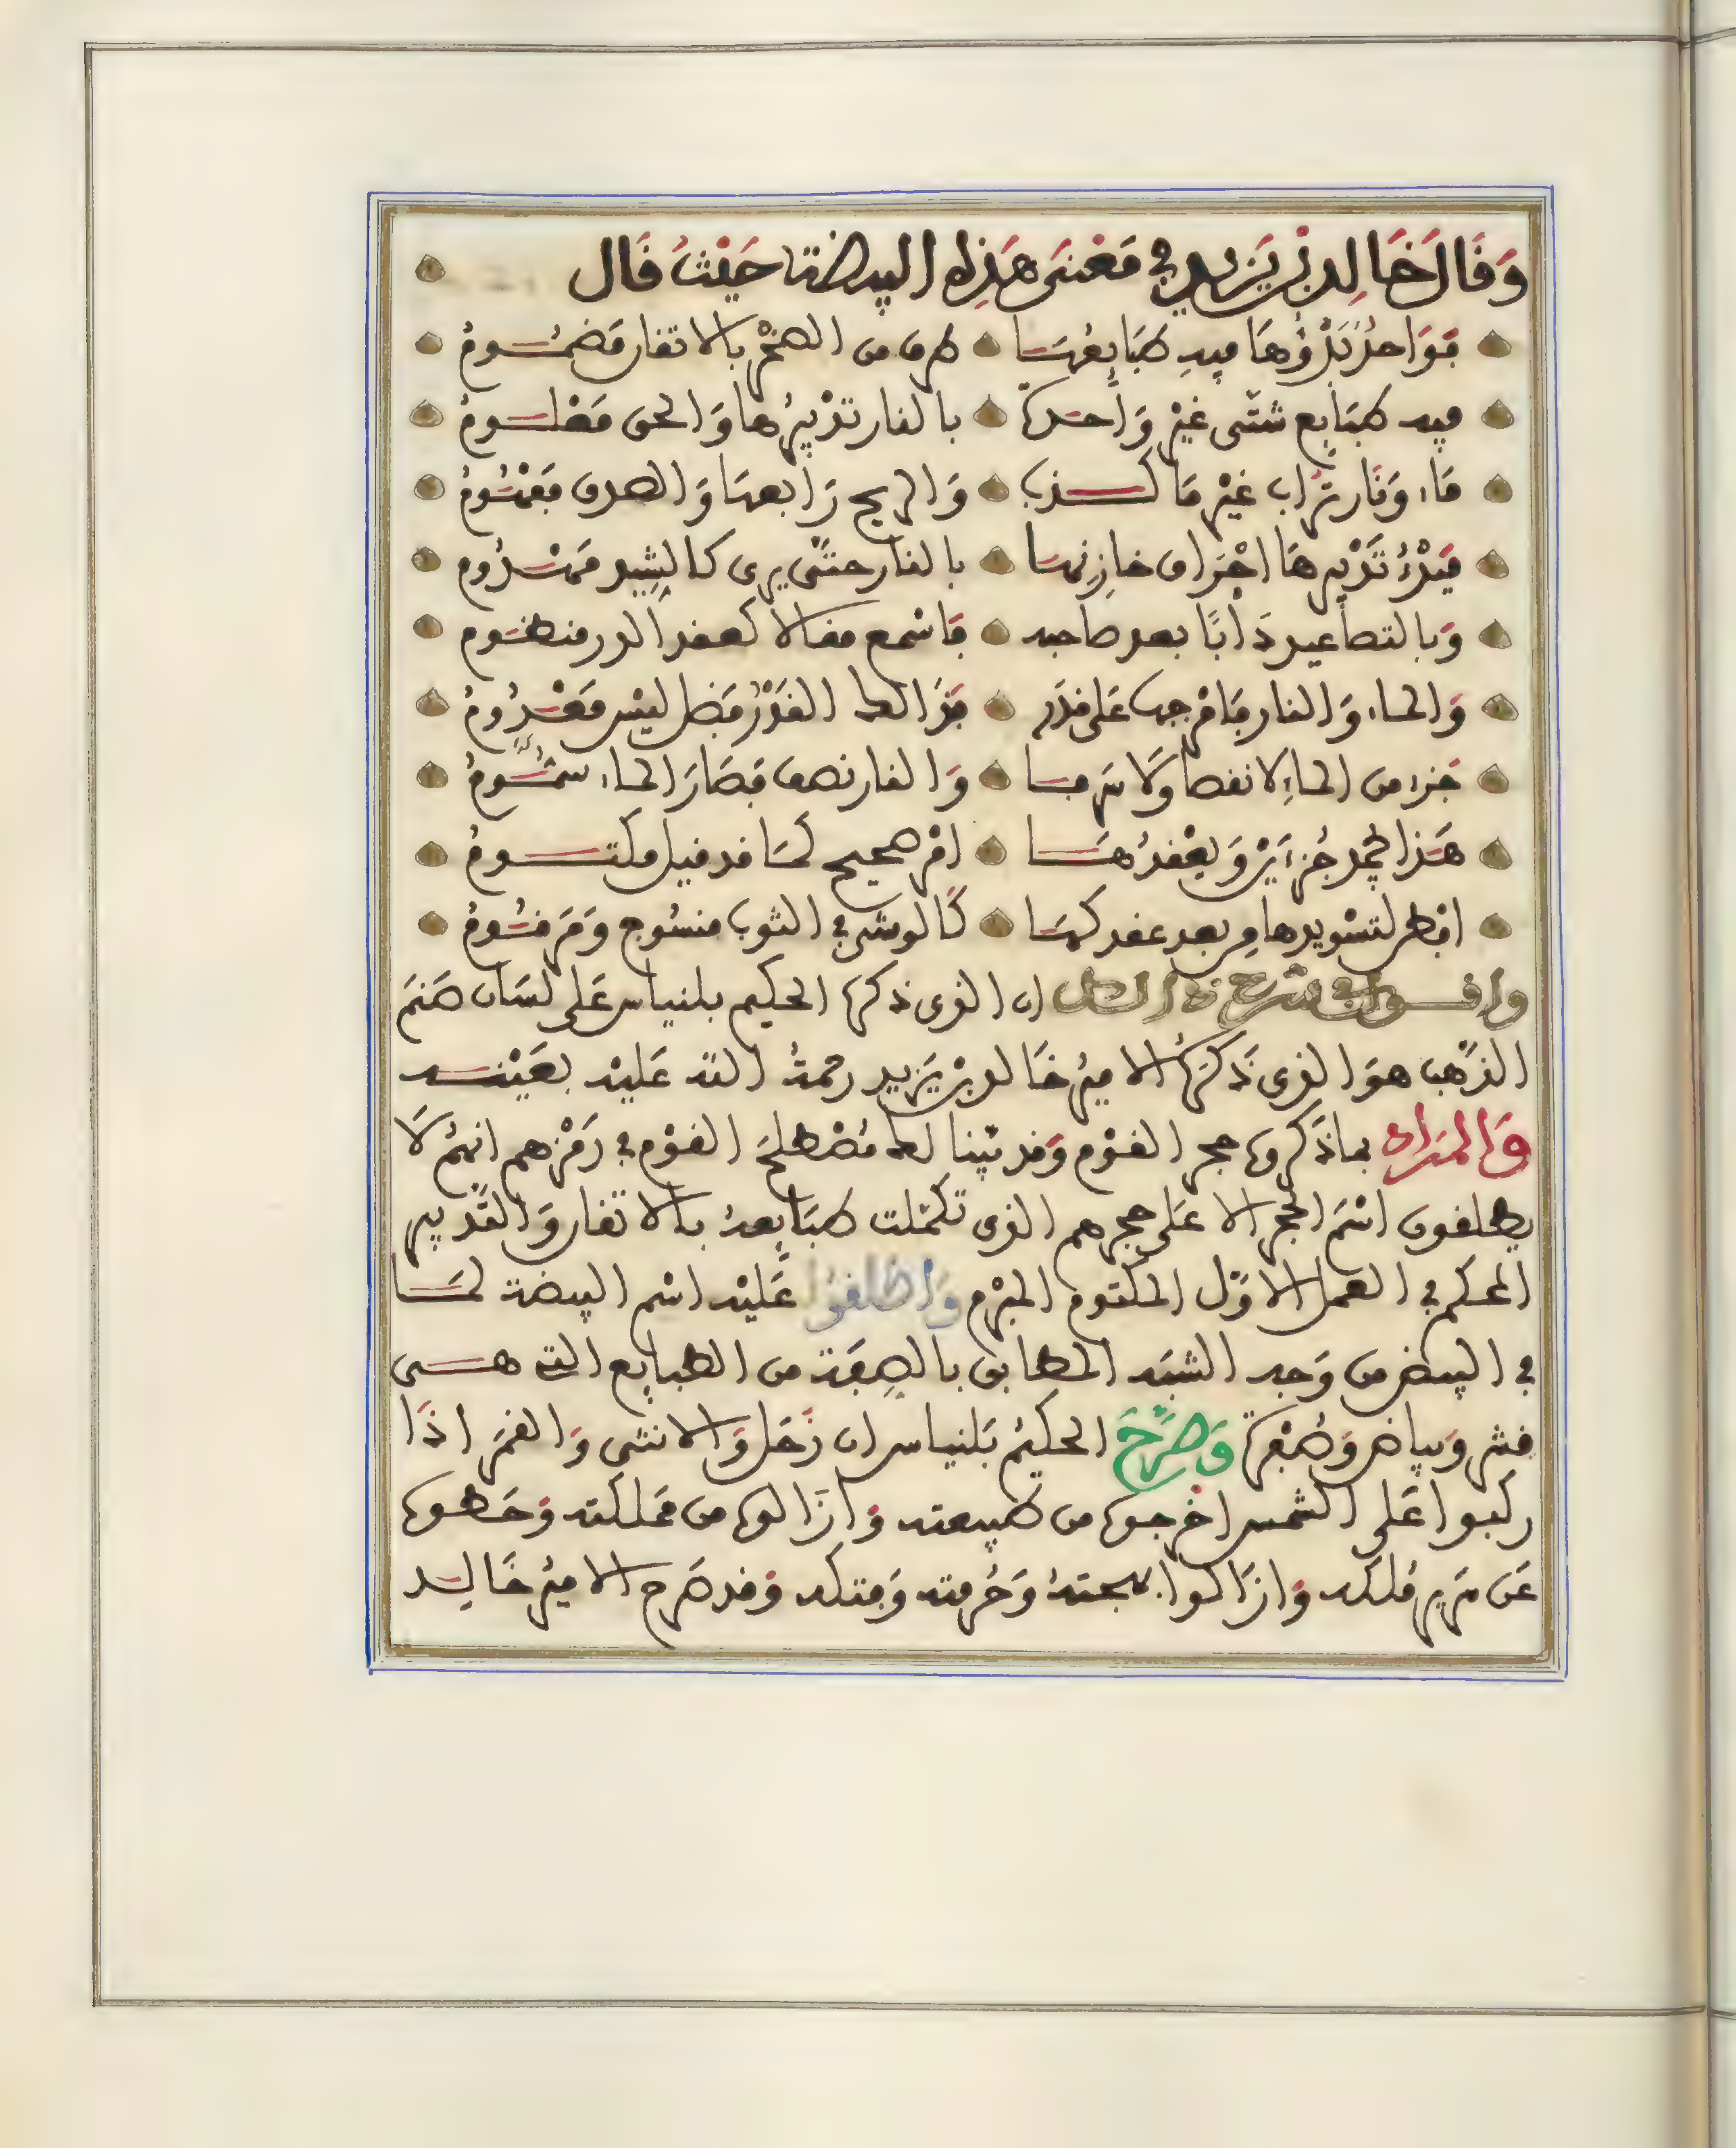 وَقَالَ خَالِدُ بْنُ يَزِيد في مَعْنَى هَذِهِ البيضة حَيْثُ قَال
فَوَاحدٌ بَدْؤُهَا فيهِ طَبَايِعُهَا طرف من الصنْع بالاتقان مَضْمُومُ
فيه طبَايع شتَّى غيْر وَاحدة بالنار تدْبيرُها وَالحق مَعْلـومُ
مَاء وَنَار تُرَاب غيْر مَا كـذب وَالريح رَابعها وَالصدق مَفْهُومُ
فبدْءُ تَدْبيرهَا احْرَاق خازِنها بالنار حتَّى يرى كالشِيد مَهْدُوم
وَبالتصَاعيد دَأبًا بعد صاحبه فَاسْمع مقالا كعقد الدر منظوم
وَالماء وَالنار فَامْزجها عَلى قدَر فَذَا القَدْرُ فَضل ليْس مَعْدُومُ
جَزء من الماء لا نقصا وَلَا سَرفا وَالنار نصف فَصَارَ الماء سمُّـومُ
هَذا جُزءَيْن وَيعْقدُهـا امْر صحيح لمَا قد قيل مكتـومُ
انظر لتسْويدها مِن بعد عقدكها كَالوشي في الثوب منسُوج وَمَرقُومُ
ان الذى ذكره الحكيم بلنياس عَلى لسَان صَنَمَ
الذّهب هوَ الذى ذَكَرَهُ الاميرُ خَالد بنْ يَزيد رحمةُ الله عَليْه بعَيْنـه
وَالمرَاد بماذَكروه حجر القوْم وَقد بيّنا لك مُصْطلحَ القوْم في رَمْزهم انهُم لَا
يطلقون اسْمَ الحجر الا عَلى حجرهم الذى تكمّلت طبَايعهُ بالاتقان وَالتدبير
المحكم في العمل الاوّل المكتوم المبْرم وَاطلقوا عَليْه اسْم البيضة لمـا
في البيض من وَجه الشبَه المطابق بالصِفَة من الطبايع التى هـى
قشر وَبياض وَصُفْرة وَصرَّحَ الحكيمُ بَلنياس ان زُحَل وَالانثى وَالقمَر اذَا
ركبوا عَلى الشمس اخرجوه من طبيعته وَازَالوه من مملكته وَحَطوه
عَن سَرير مُلكه وَازَالوا بهجتهُ وَحُرمته وَفتكه وَقد صَرح الاميرُ خَالِـد